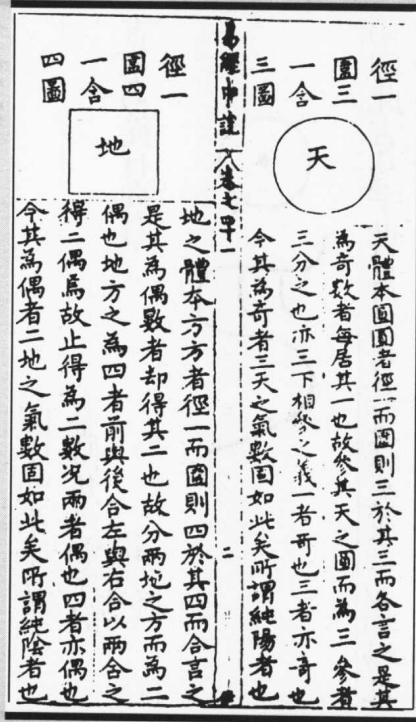 徑一
圍三
一含
三圖
天
天體本圓圓者徑一而圍則三於其三而各言之是其
為奇數者每居其一也故參其天之圍而為三參者
三分之也亦三下相參之義一者奇也三者亦奇也
今其為奇者三天之氣數固如此矣所謂純陽者也
易經中說 卷七
二
徑一
圍四
一含
四圖
地
地之體本方方者徑一而圍則四於其四而合言之
是其為偶數者却得其二也故分兩地之方而為二
偶也地方之為四者前與後合左與右合以兩合之
得二偶焉故止得為二數况兩者偶也四者亦偶也
今其為偶者二地之氣數固如此矣所謂純陰者也